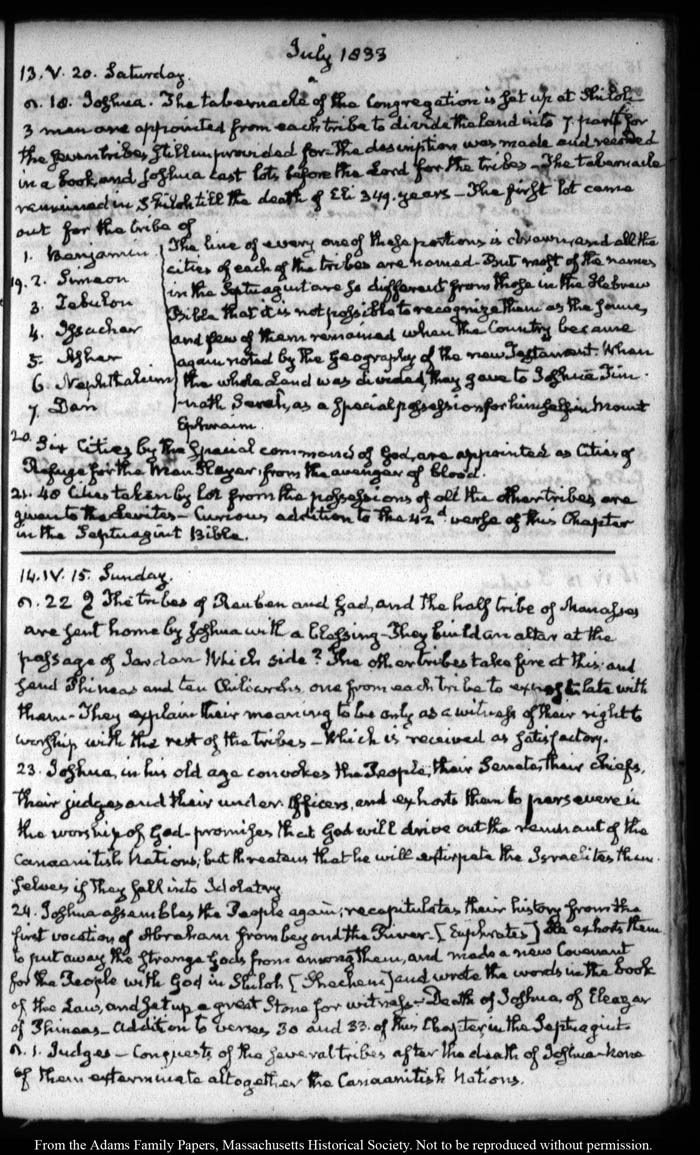 July 1833
13. V. 20. Saturday.
n. 18. Joshua. The tabernacle of the Congregation is set up at Shiloh
3 men are appointed from each tribe to divide the land into 7 parts for
the seven tribes still unprovided for. The description was made and recorded
in a book, and Joshua cast lots before the Lord for the tribes — The tabernacle
remained in Shiloh till the death of Eli 349. years — The first lot came
out for the tribe of
1. Benjamin. The line of every one of these portions is drawn, and all the
19. 2. Simeon cities of each of the tribes are named. But most of the names
3. Zebulon in the Septuagint are so different from those in the Hebrew
4. Issachar Bible that it is not possible to recognize them as the same,
5. Asher and few of them remained when the Country became
6. Nephthalim again noted by the geography of the new Testament. When
7. Dan the whole Land was divided, they gave to Joshua Tim-
-nath Serah, as a special possession for himself in Mount
Ephraim.
20. Six Cities by the special command of God, are appointed as Cities of
Refuge for the Man Slayer, from the avenger of blood.
21. 48 Cities taken by lot from the possessions of all the other tribes are
given to the Levites — Curious addition to the 42d verse of this Chapter
in the Septuagint Bible.
14. IV. 15. Sunday.
n. 22 The tribes of Reuben and Gad, and the half tribe of Manasses
are sent home by Joshua with a blessing — They build an altar at the
passage of Jordan Which side? The other tribes take fire at this, and
send Phineas and ten Chiliarchs, one from each tribe to expostulate with
them — They explain their meaning to be only as a witness of their right to
worship with the rest of the tribes — Which is received as satisfactory.
23. Joshua, in his old age convokes the People, their Senate, their chiefs,
their judges and their under officers, and exhorts them to persevere in
the worship of God — promises that God will drive out the remnant of the
Canaanitish Nations; but threatens that he will extirpate the Israelites them-
selves if they fall into Idolatry
24. Joshua assembles the People again; recapitulates their history from the
first vocation of Abraham from beyond the River. [Euphrates] He exhorts them
to put away the strange Gods from among them, and made a new Covenant
for the People with God in Shiloh [Shechem] and wrote the words in the book
of the Law, and set up a great Stone for witness — Death of Joshua, of Eleazar
of Phineas — addition to verses 30 and 33. of this Chapter in the Septuagint.
n. 1. Judges — Conquests of the several tribes after the death of Joshua — none
of them exterminate altogether the Canaanitish Nations.
From the Adams Family Papers, Massachusetts Historical Society. Not to be reproduced without permission.